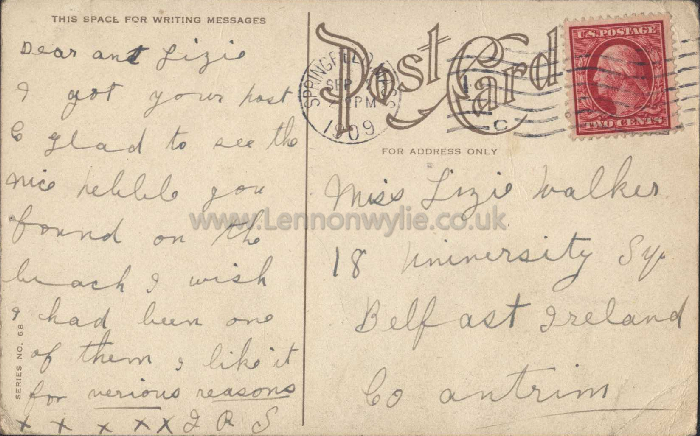 THIS SPACE FOR WRITING MESSAGES
Dear ant Lizie
I got your post
C glad to see the
nice pebble you
found on the
beach I wish
I had been one
of them I like it
for verious reasons
x x x x x J R S
SERIES NO. 68
Post Card
SPRINGFIELD
SEP
PM
1909
U.S. POSTAGE
TWO CENTS
FOR ADDRESS ONLY
Miss Lizie Walker
18 University Sq.
Belfast Ireland
Co antrim
www.Lennonwylie.co.uk